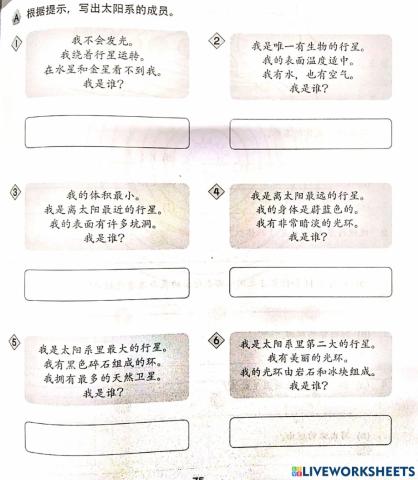 A 根据提示，写出太阳系的成员。
1
我不会发光。
我绕着行星运转。
在水星和金星看不到我。
我是谁？
2
我是唯一有生物的行星。
我的表面温度适中。
我有水，也有空气。
我是谁？
3
我的体积最小。
我是离太阳最近的行星。
我的表面有许多坑洞。
我是谁？
4
我是离太阳最远的行星。
我的身体是蔚蓝色的。
我有非常暗淡的光环。
我是谁？
5
我是太阳系里最大的行星。
我有黑色碎石组成的环。
我拥有最多的天然卫星。
我是谁？
6
我是太阳系里第二大的行星。
我有美丽的光环。
我的光环由岩石和冰块组成。
我是谁？
75
LIVEWORKSHEETS